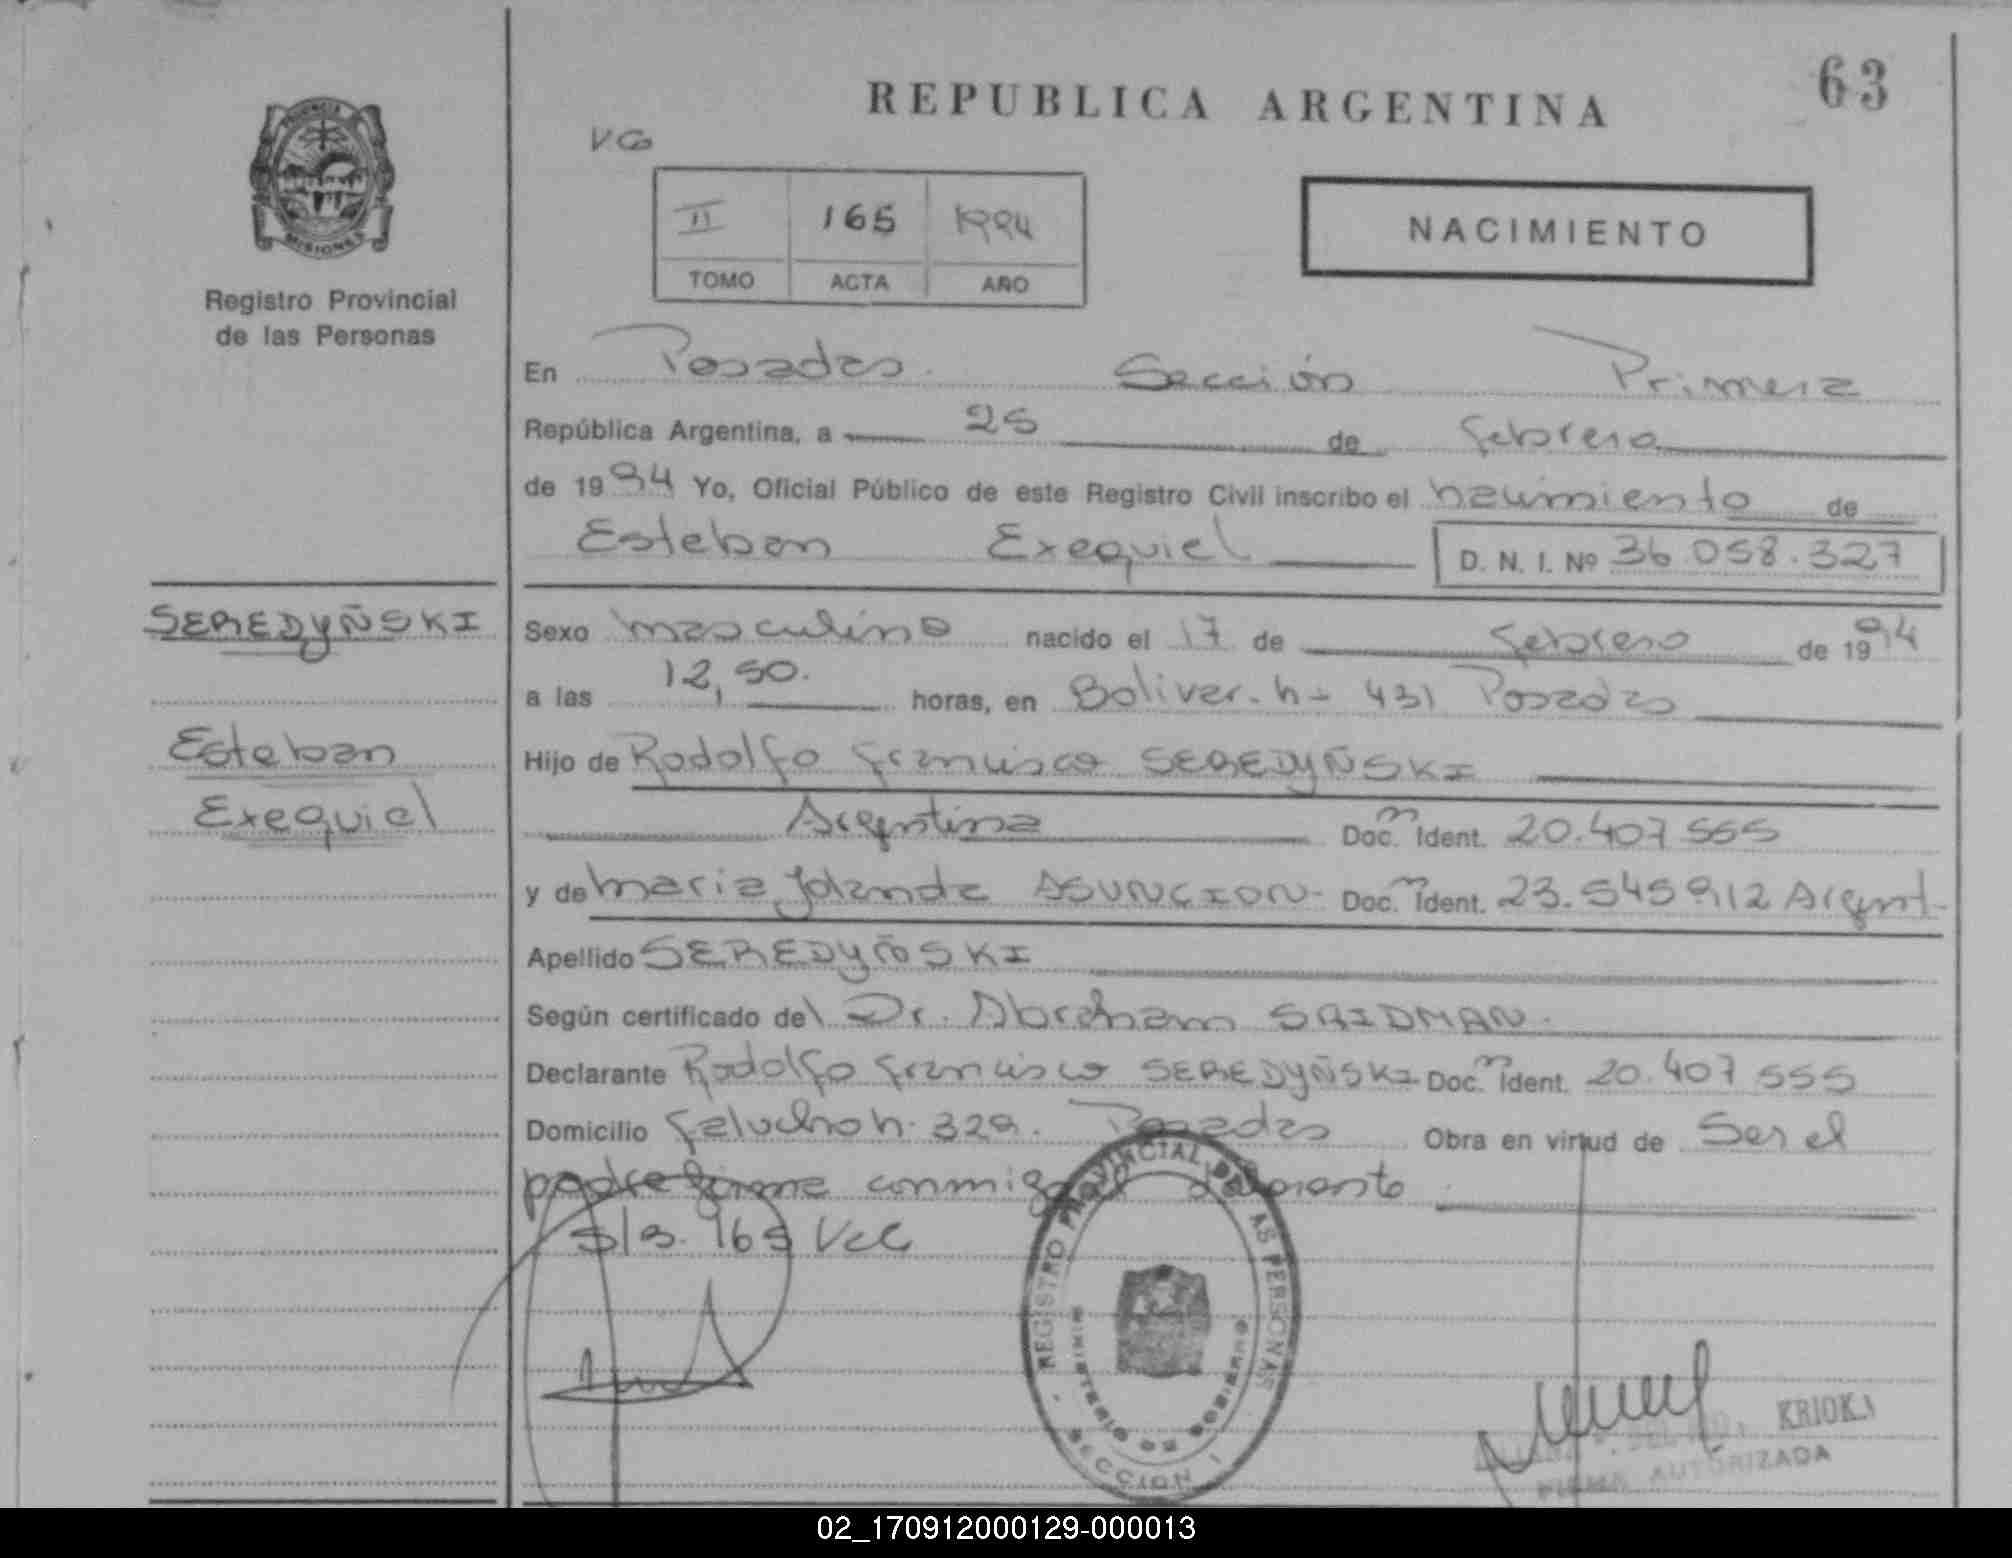 63
REPUBLICA ARGENTINA
VG
II 165 1994
TOMO ACTA AÑO
NACIMIENTO
MISIONES
Registro Provincial
de las Personas
En Posadas Sección Primera
República Argentina, a 25 de febrero
de 1994 Yo, Oficial Público de este Registro Civil inscribo el nacimiento de
Esteban Exequiel D. N. I. Nº 36.058.327
SEREDYÑSKI
Esteban
Exequiel
Sexo masculino nacido el 17 de febrero de 1994
a las 12,50. horas, en Bolivar - n - 431 Posadas
Hijo de Rodolfo Francisco SEREDYÑSKI
Argentina Doc. m Ident. 20.407 555
y de Maria Yolanda ASUNCION - Doc. m Ident. 23.545 912 Argent.
Apellido SEREDYÑSKI
Según certificado del Dr. Abraham
Declarante Rodolfo Francisco SEREDYÑSKI Doc. m Ident. 20.407 555
Domicilio Falucho n. 329. Posadas Obra en virtud de Ser el
padre firma conmigo
165
REGISTRO PROVINCIAL DE LAS PERSONAS
MINISTERIO DE GOBIERNO
SECCION I
KRIOKI
FIRMA AUTORIZADA
02_170912000129-000013